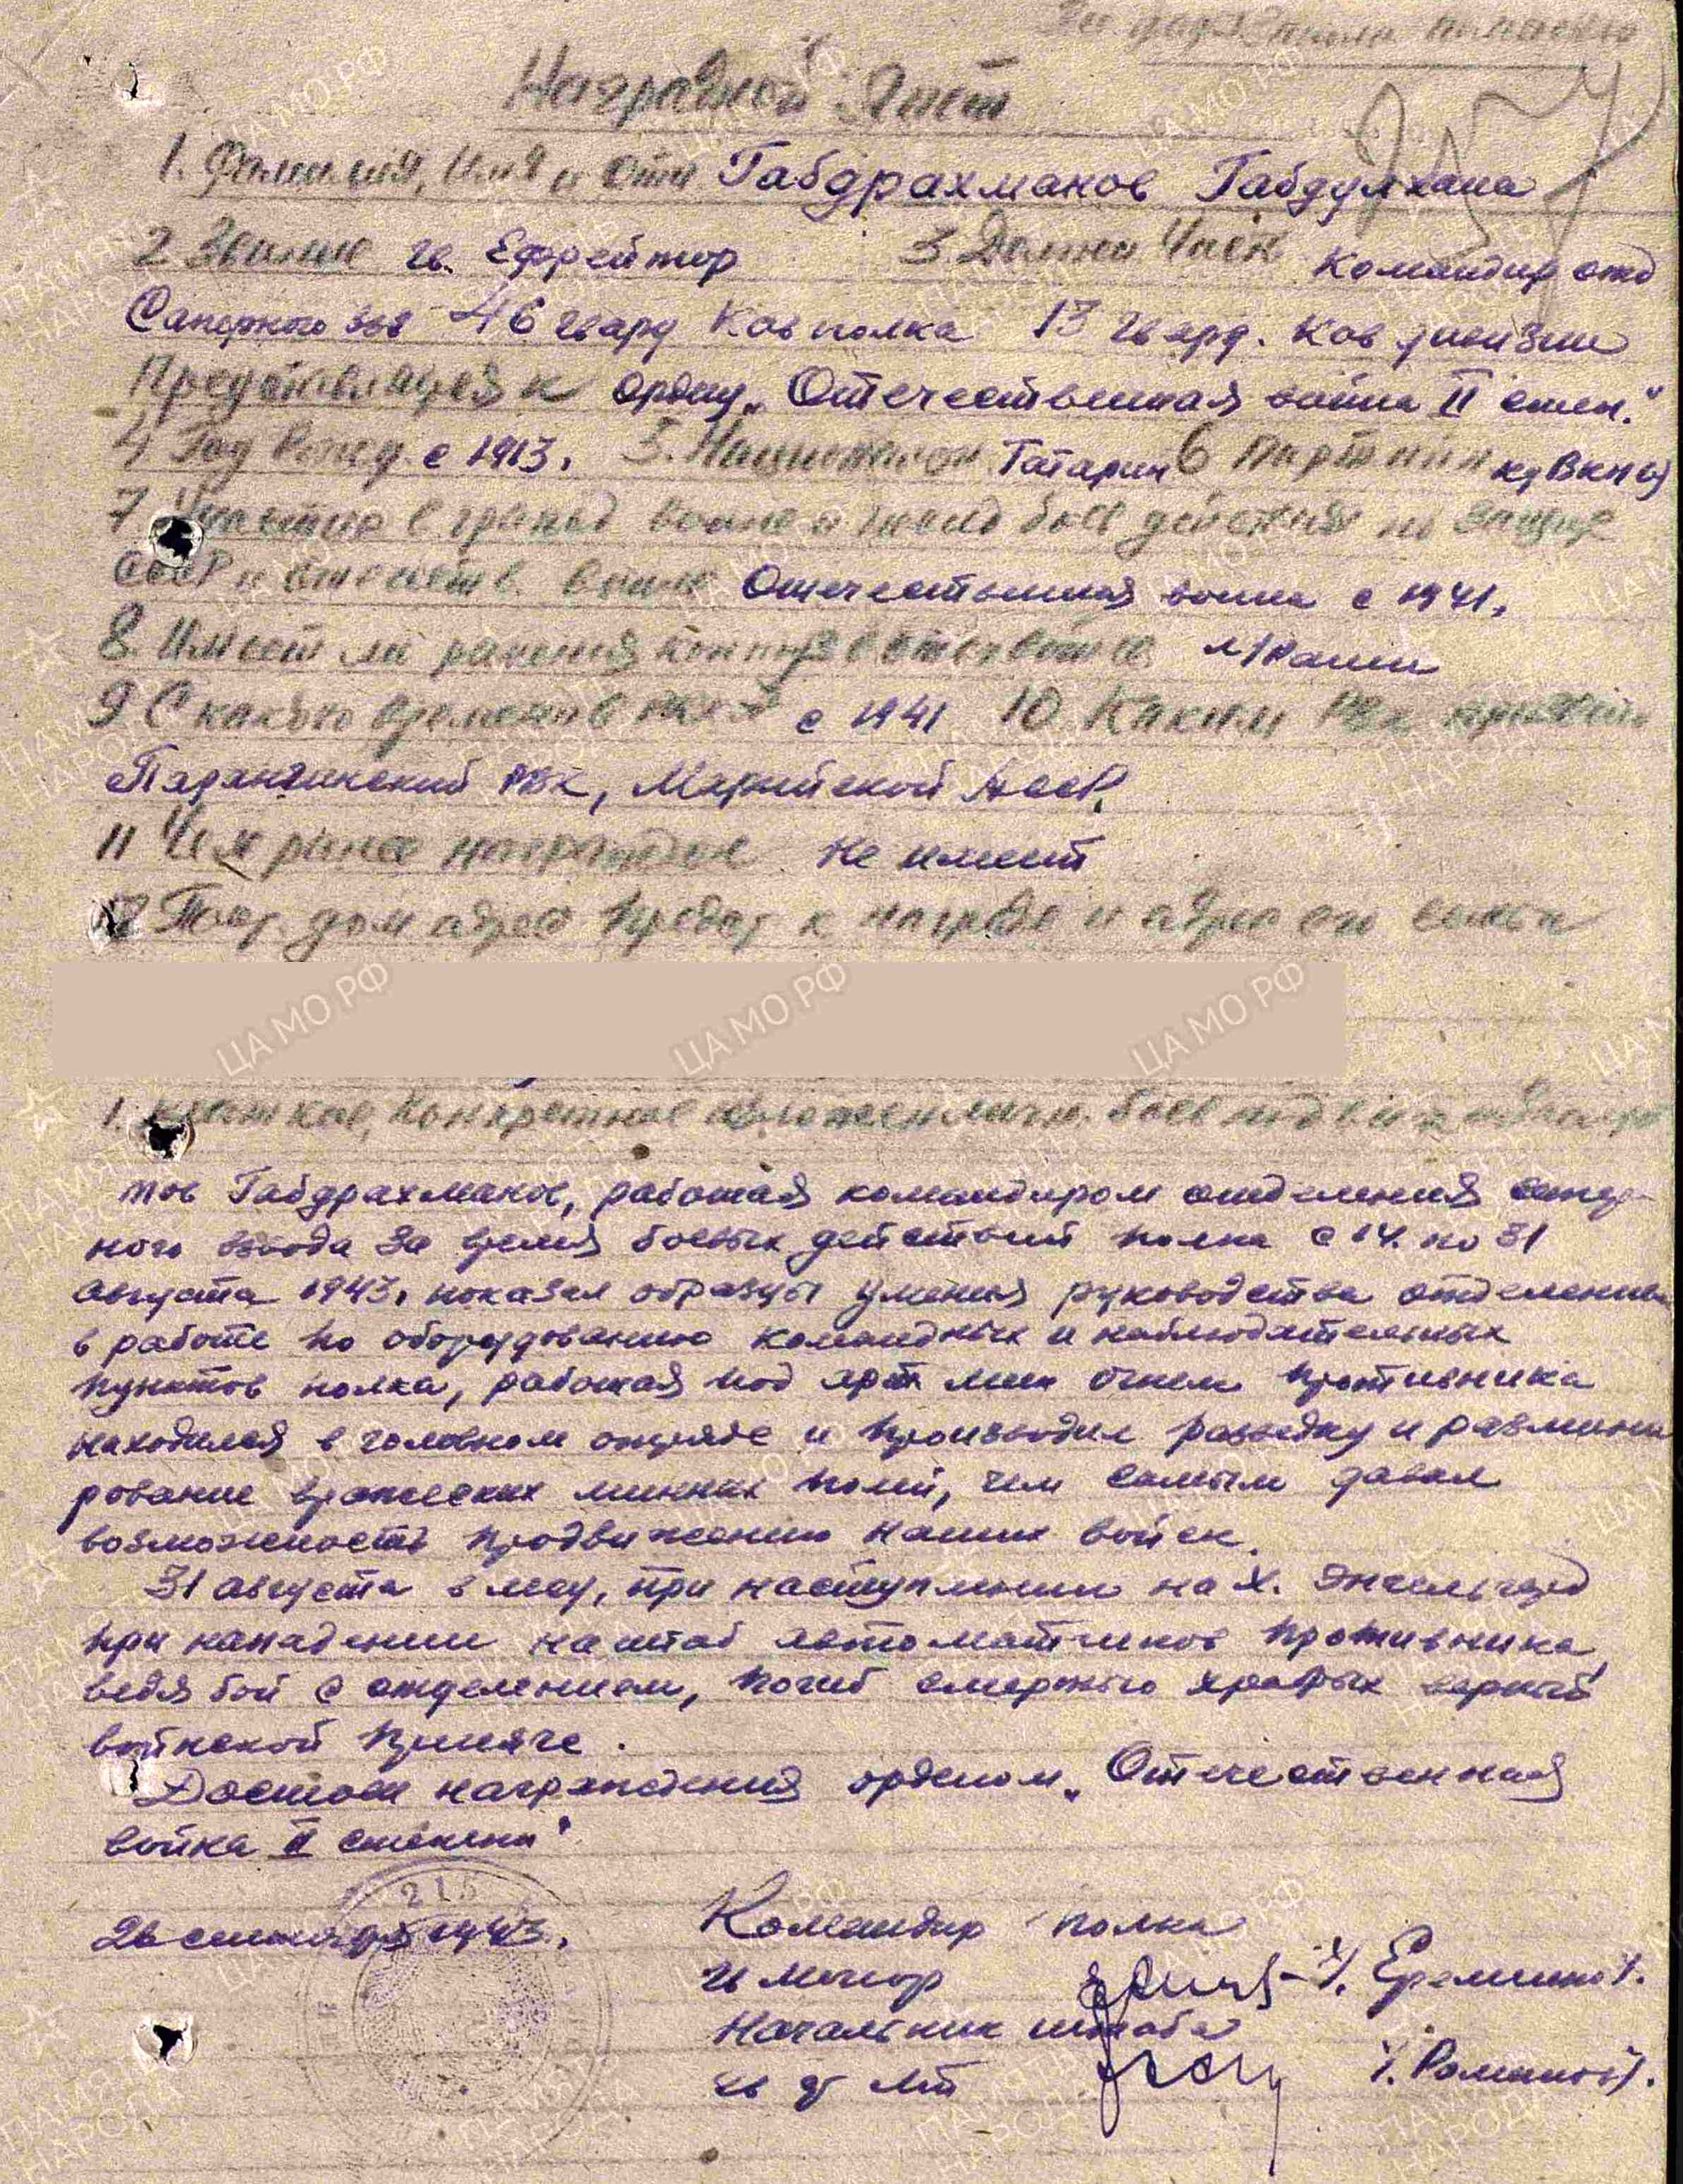 Наградной Лист
1. Фамилия, Имя и Отч Габдрахманов Габдулхана
2 Звание гв. Ефрейтор 3. Должн. Часть Командир отд
Саперного взв 46 гвард Кав полка 13 гвард. Кав дивизии
Представляется к ордену „Отечественная война II степ."
4 Год Рожд. с 1913. 5. Национальн Татарин 6 Партийн кд ВКП(б)
7. Участие в гражд войне и послед боев действия по защите
СССР и отечеств. войне Отечественная война с 1941.
8. Имеет ли ранения контузия в отечеств. л/ранен
9 С какого времени в РККА с 1941 10 Каким РВК призван
Парангинский РВК, Марийской АССР.
11 Чем ранее награжден не имеет
12 Пост. дом адрес Предст к награде и адрес его семьи
ЦА МО РФ ЦА МО РФ ЦА МО РФ
1. Краткое, Конкретное изложен личн. боев подвига
тов Габдрахманов, работая командиром отделения сапер-
ного взвода за время боевых действий полка с 14. по 31
августа 1943. показал образцы умения руководства отделением
в работе по оборудованию командных и наблюдательных
пунктов полка, работая под арт мин огнем противника
находился в головном отряде и производил разведку и размини
рование вражеских минных полей, чем самым давал
возможность продвижению наших войск.
31 августа в м-цу, при наступлении на х.
при нападении на штаб автоматчиков противника,
ведя бой с отделением, погиб смертью храбрых верный
воинской присяге.
Достоин награждения орденом „Отечественная
война II степени"
26 сентября 1943.
Командир полка
гв майор /. Еремин /.
Начальник штаба
гв лт /. /.